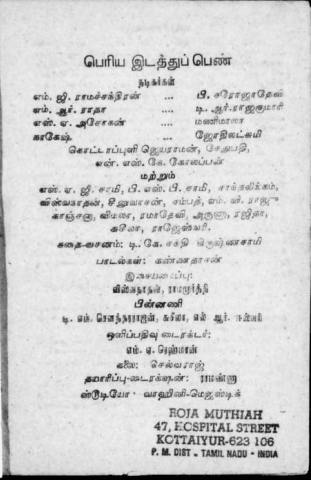 பெரிய இடத்துப் பெண்
நடிகர்கள்
எம். ஜி. ராமச்சந்திரன் ... பி. சரோஜாதேவி
எம். ஆர். ராதா ... டி. ஆர். ராஜகுமாரி
எஸ். ஏ. அசோகன் ... மணிமாலா
நாகேஷ் ... ஜோதிலட்சுமி
கொட்டாப்புளி ஜெயராமன், சேதுபதி,
என். எஸ். கே. கோலப்பன்
மற்றும்
எஸ். ஏ. ஜி. சாமி, பி. எஸ். பி. சாமி,
விஸ்வநாதன், சீனுவாசன், சம்பத், எம். வி. ராஜு
காஞ்சனா, விமலா, ரமாதேவி, அருணா, ரஜிதா,
சுசீலா, ராஜேஸ்வரி.
கதை-வசனம்: டி. கே. சக்தி கிருஷ்ணசாமி
பாடல்கள்: கண்ணதாசன்
இசையமைப்பு:
விஸ்வநாதன், ராமமூர்த்தி
பின்னணி
டி. எம். சௌந்தரராஜன், சுசீலா, எல். ஆர். ஈஸ்வரி
ஒளிப்பதிவு டைரக்டர்:
எம். ஏ. ரெஹ்மான்
கலை: செல்வராஜ்
தயாரிப்பு-டைரக்‌ஷன்: ராமண்ணா
ஸ்டூடியோ - வாஹினி-மெஜஸ்டிக்
ROJA MUTHIAH
47, HOSPITAL STREET
KOTTAIYUR-623 106
P. M. DIST. TAMIL NADU - INDIA